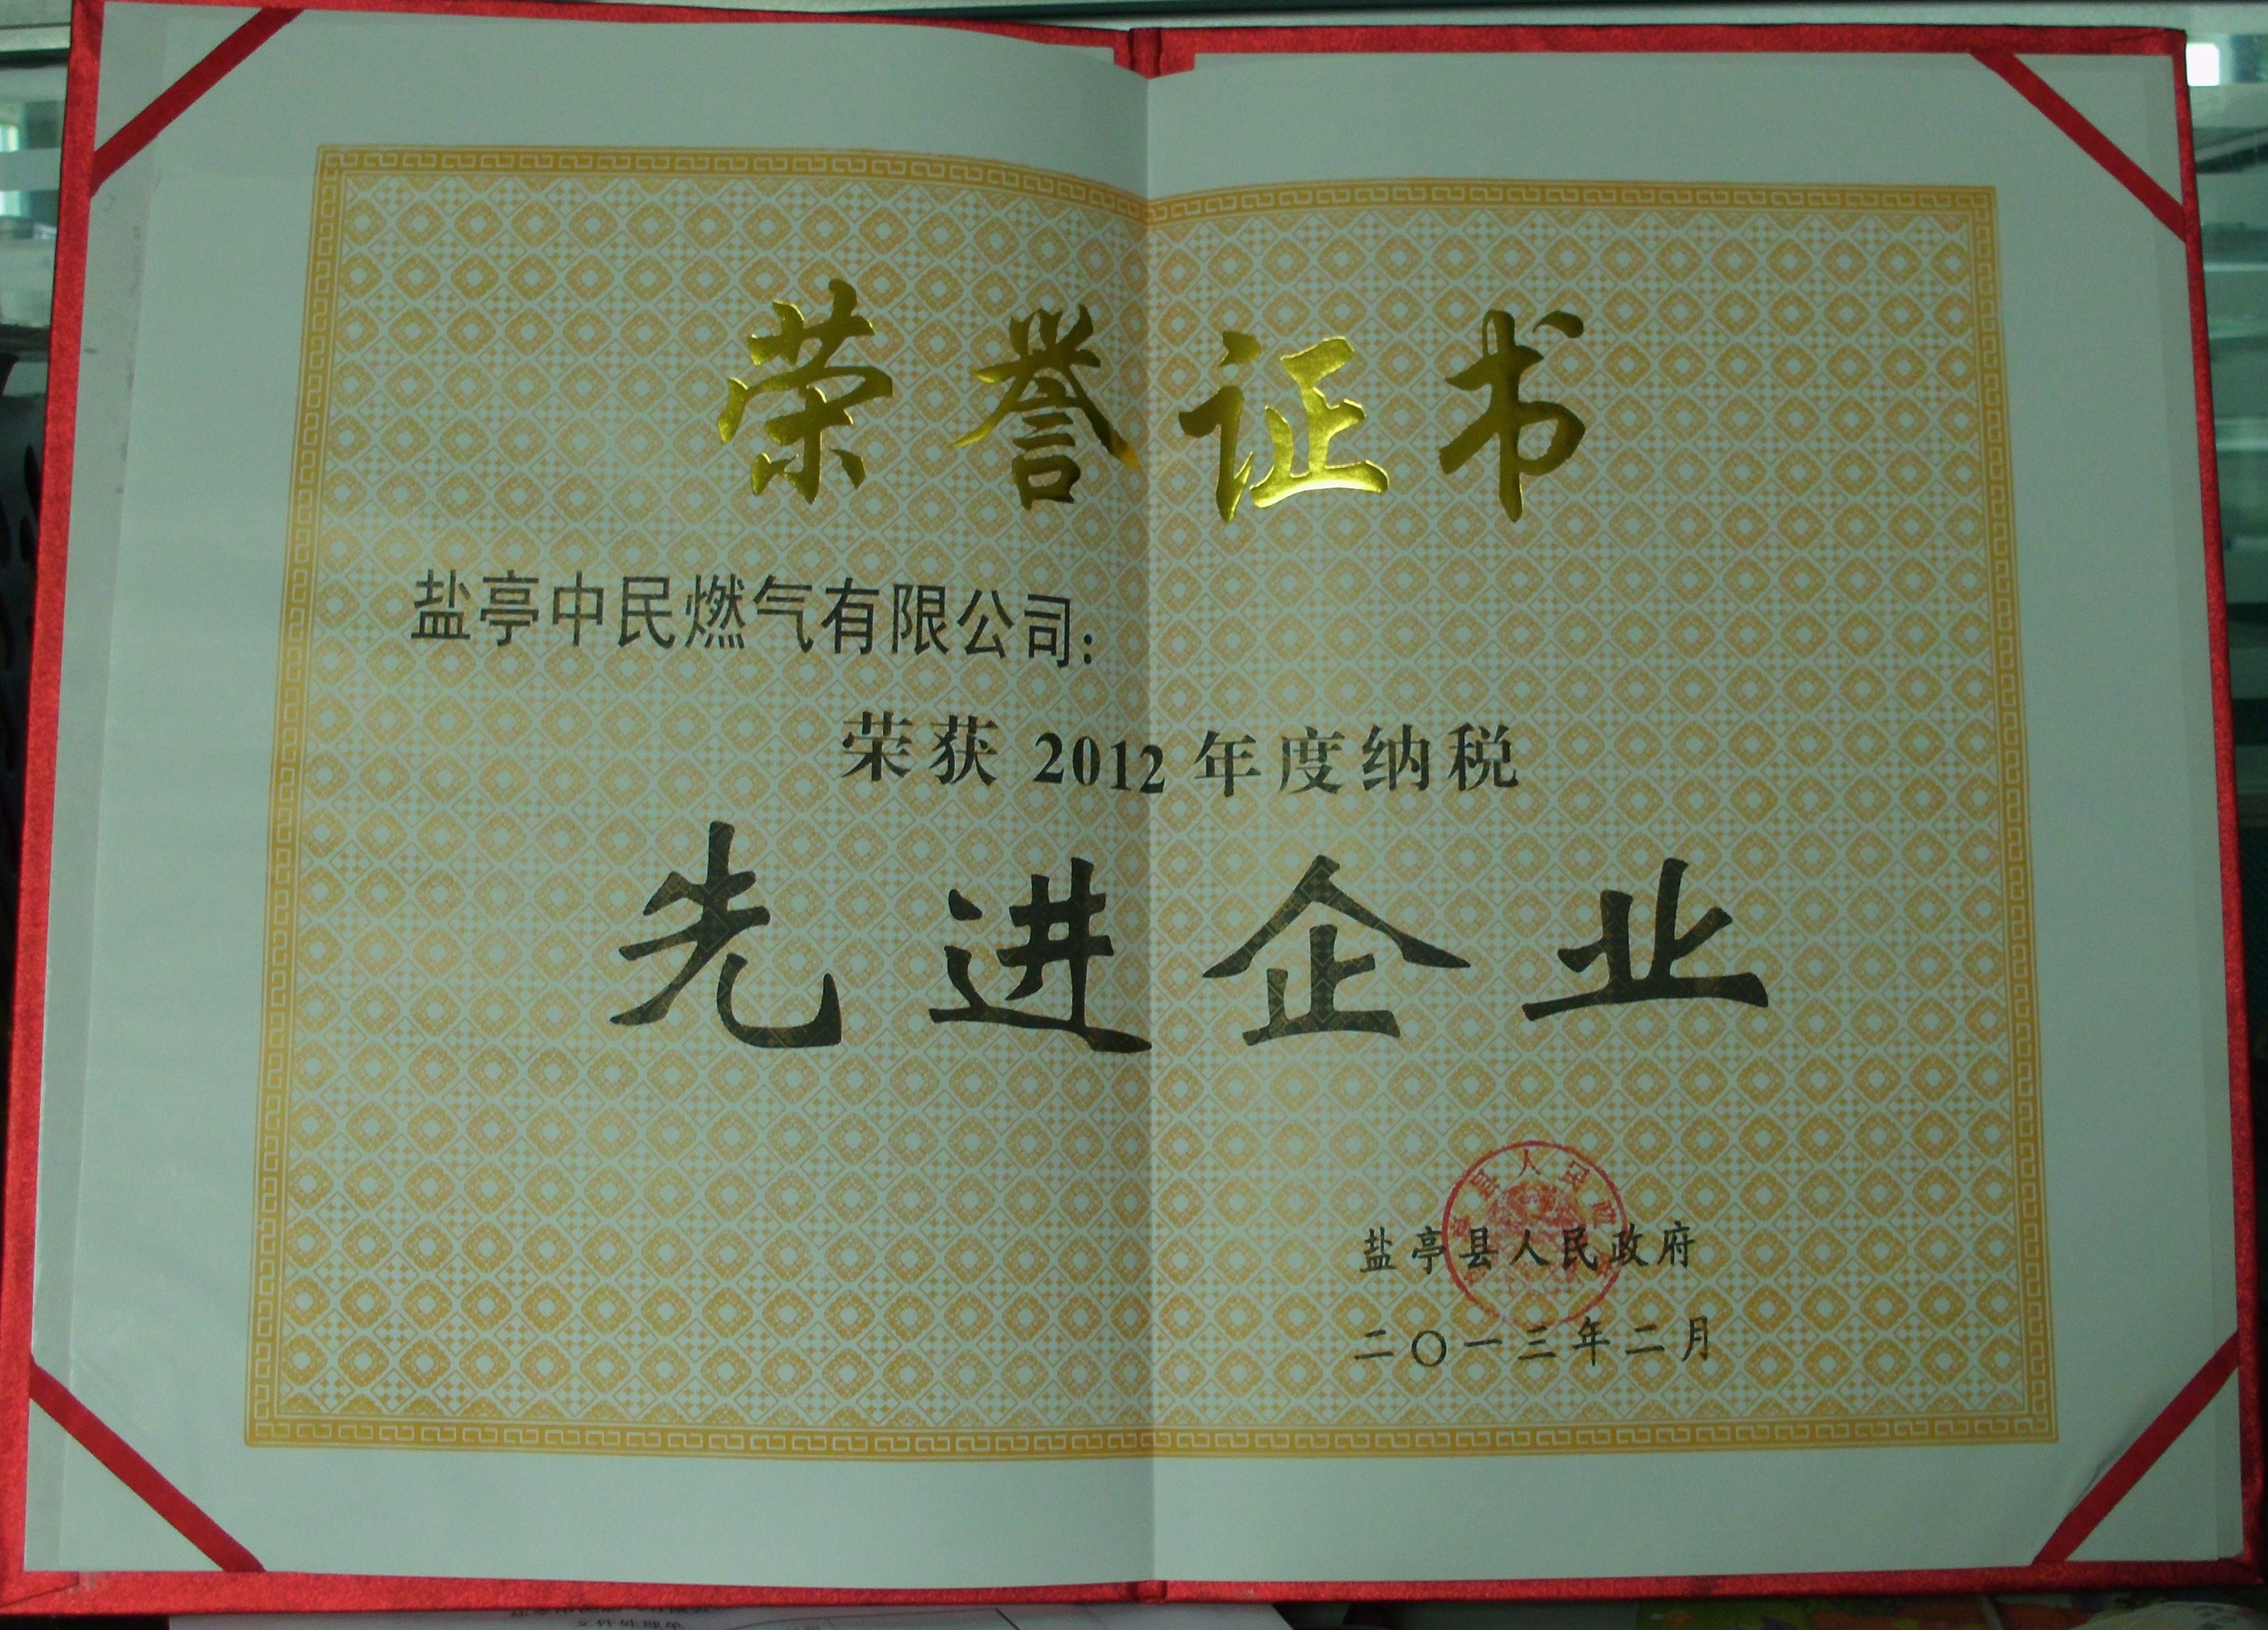 荣誉证书
盐亭中民燃气有限公司：
荣获 2012 年度纳税
先进企业
盐亭县人民政府
二〇一三年二月